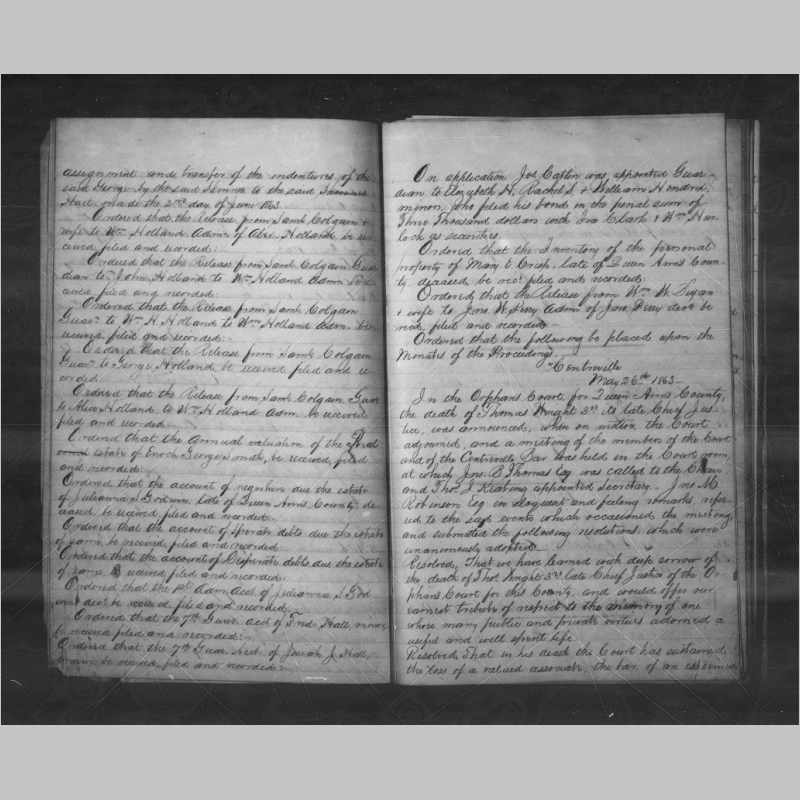 assignment and transfer of the indentures of the
said George by the said to the said
Hart, made the 2nd day of June 1863.
Ordered that the Release from Saml Colgain &
wife to Wm Holland Admr of Alex. Holland be re-
ceived filed and recorded.
Ordered that the Release from Saml Colgain Guar-
dian to John Holland to Wm Holland Admr be re-
ceived filed and recorded.
Ordered that the Release from Saml Colgain
Guarn to Wm H. Holland to Wm Holland Adm. be
received filed and recorded.
Ordered that the Release from Saml Colgain
Guarn to George Holland, be received filed and re-
corded.
Ordered that the Release from Saml Colgain Guar
to Alex Holland to Wm Holland Adm. be received
filed and recorded.
Ordered that the Annual valuation of the Real
estate of Enoch George of, be received, filed
and recorded.
Ordered that the account of negroes due the estate
of Julianna S. Godwin, late of Queen Anns County, de-
ceased be received, filed and recorded.
Ordered that the account of Sperate debts due the estate
of same be received filed and recorded.
Ordered that the account of Disperate debts due the estate
of same B received filed and recorded.
Ordered that the 1st Adm Acct of Julianna S. God
win decd be received filed and recorded.
Ordered that the 7th Guar. acct of Fred. Hall, minor
be received filed and recorded.
Ordered that the 7th Guar. Acct. of Josiah J. Hall,
minor be received, filed and recorded.
On application Jos. Catlin was appointed Guar-
dian to Elizabeth H. Rachel S. & William Hendrix
minors, who filed his bond in the penal sum of
Three Thousand dollars with Jno Clark & Wm Han-
cock as securities.
Ordered that the Inventory of the personal
property of Mary E. Crisp, late of Queen Anns Coun-
ty, deceased be recd filed and recorded.
Ordered that the Release from Wm W.
& wife to Jons W. Adm of Jons decd be
recd, filed and recorded.
Ordered that the following be placed upon the
Minutes of the Proceedings.
"Centreville
May 26th 1863—
In the Orphans Court for Queen Anns County,
the death of Thomas Wright 3rd its late Chief Jus-
tice, was announced, when on motion the Court
adjourned, and a meeting of the member of the Court
and of the Centreville Bar was held in the Court room
at which Jno. B. Thomas Esq was called to the Chair
and Thos. J. Keating appointed Secretary. Jno M.
Robinson Esq. in eloquent and feeling remarks, refer-
ed to the sad event which occasioned the meeting,
and submitted the following resolutions which were
unanimously adopted.
Resolved, That we have learned with deep sorrow of
the death of Thos. Wright 3rd late Chief Justice of the Or-
phans Court for this County, and would offer our
earnest tribute of respect to the memory of one
whose many public and private virtues adorned a
useful and well spent life.
Resolved, That in his death the Court has sustained
the loss of a valued associate, the bar, of an esteemed